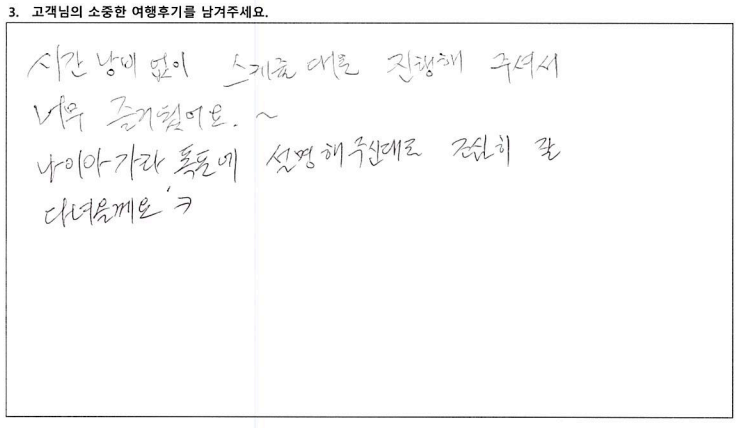 3. 고객님의 소중한 여행후기를 남겨주세요.
시간 낭비 없이 스케줄 대로 진행해 주셔서
너무 즐거웠어요. ~
나이아가라 폭포에 설명해 주신대로 조심히 잘
다녀올께요 ㅋ